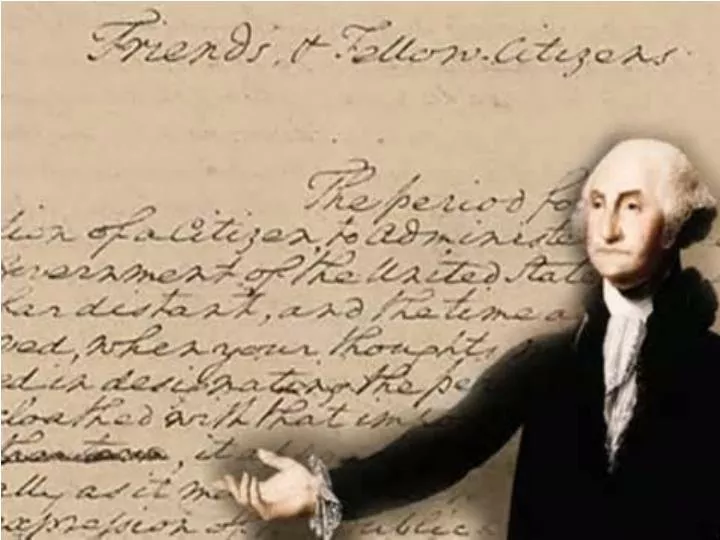 Friends, & Fellow-Citizens
The period fo
tion of a Citizen, to administe
Government of the United State
far distant, and the time a
ved, when your thoughts
ed in designating the per
cloathed with that impo
it app
ally as it m
expression of public